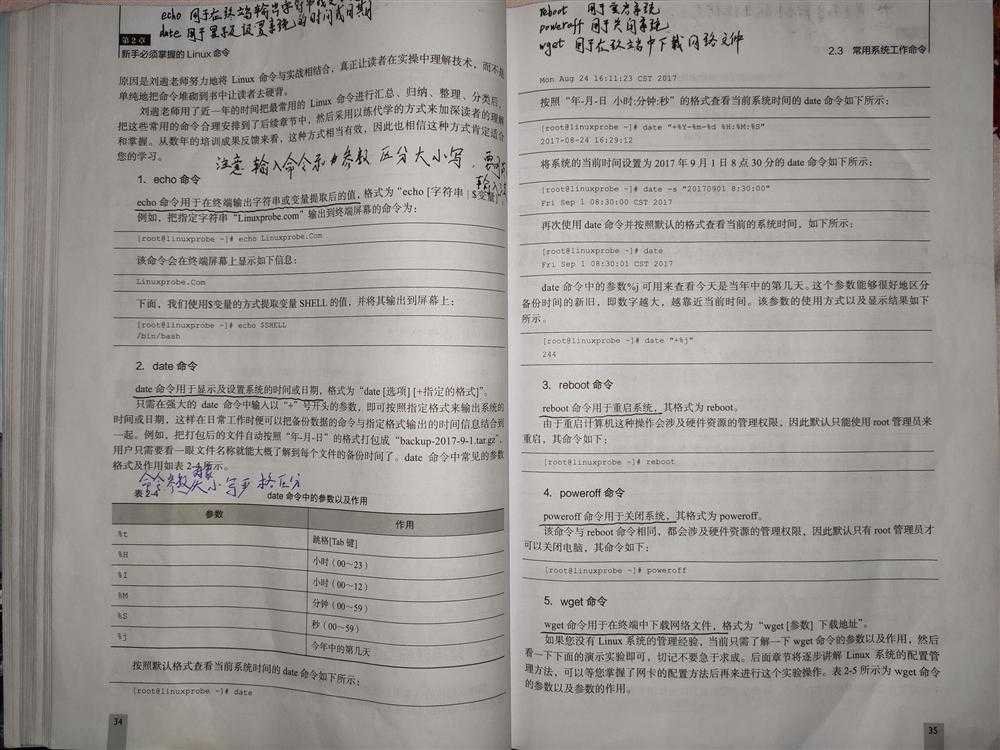 echo 用于在终端输出字符串或
date 用于显示及设置系统的时间或日期
第2章
新手必须掌握的 Linux 命令
原因是刘遄老师努力地将 Linux 命令与实战相结合，真正让读者在实操中理解技术，而不是
单纯地把命令堆砌到书中让读者去硬背。
刘遄老师用了近一年的时间把最常用的 Linux 命令进行汇总、归纳、整理、分类后，
把这些常用的命令合理安排到了后续章节中，然后采用以练代学的方式来加深读者的理解
和掌握。从数年的培训成果反馈来看，这种方式相当有效，因此也相信这种方式肯定适合
您的学习。
注意 输入命令和参数 区分大小写，要
1．echo 命令
echo 命令用于在终端输出字符串或变量提取后的值，格式为“echo [字符串 | $变量]”。
例如，把指定字符串“Linuxprobe.com”输出到终端屏幕的命令为：
[root@linuxprobe ~]# echo Linuxprobe.Com
该命令会在终端屏幕上显示如下信息：
Linuxprobe.Com
下面，我们使用$变量的方式提取变量 SHELL 的值，并将其输出到屏幕上：
[root@linuxprobe ~]# echo $SHELL
/bin/bash
2．date 命令
date 命令用于显示及设置系统的时间或日期，格式为“date [选项] [+指定的格式]”。
只需在强大的 date 命令中输入以“+”号开头的参数，即可按照指定格式来输出系统的
时间或日期，这样在日常工作时便可以把备份数据的命令与指定格式输出的时间信息结合到
一起。例如，把打包后的文件自动按照“年-月-日”的格式打包成“backup-2017-9-1.tar.gz”，
用户只需要看一眼文件名称就能大概了解到每个文件的备份时间了。date 命令中常见的参数
格式及作用如表 2-4 所示。
命令参数 大小写严格区分
表 2-4 date 命令中的参数以及作用
参数 作用
%t 跳格[Tab 键]
%H 小时（00～23）
%I 小时（00～12）
%M 分钟（00～59）
%S 秒（00～59）
%j 今年中的第几天
按照默认格式查看当前系统时间的 date 命令如下所示：
[root@linuxprobe ~]# date
34
reboot 用于重启系统
poweroff 用于关闭系统
wget 用于在终端中下载网络文件
2.3 常用系统工作命令
Mon Aug 24 16:11:23 CST 2017
按照“年-月-日 小时:分钟:秒”的格式查看当前系统时间的 date 命令如下所示：
[root@linuxprobe ~]# date "+%Y-%m-%d %H:%M:%S"
2017-08-24 16:29:12
将系统的当前时间设置为 2017 年 9 月 1 日 8 点 30 分的 date 命令如下所示：
[root@linuxprobe ~]# date -s "20170901 8:30:00"
Fri Sep 1 08:30:00 CST 2017
再次使用 date 命令并按照默认的格式查看当前的系统时间，如下所示：
[root@linuxprobe ~]# date
Fri Sep 1 08:30:01 CST 2017
date 命令中的参数%j 可用来查看今天是当年中的第几天。这个参数能够很好地区分
备份时间的新旧，即数字越大，越靠近当前时间。该参数的使用方式以及显示结果如下
所示。
[root@linuxprobe ~]# date "+%j"
244
3．reboot 命令
reboot 命令用于重启系统，其格式为 reboot。
由于重启计算机这种操作会涉及硬件资源的管理权限，因此默认只能使用 root 管理员来
重启，其命令如下：
[root@linuxprobe ~]# reboot
4．poweroff 命令
poweroff 命令用于关闭系统，其格式为 poweroff。
该命令与 reboot 命令相同，都会涉及硬件资源的管理权限，因此默认只有 root 管理员才
可以关闭电脑，其命令如下：
[root@linuxprobe ~]# poweroff
5．wget 命令
wget 命令用于在终端中下载网络文件，格式为“wget [参数] 下载地址”。
如果您没有 Linux 系统的管理经验，当前只需了解一下 wget 命令的参数以及作用，然后
看一下下面的演示实验即可，切记不要急于求成。后面章节将逐步讲解 Linux 系统的配置管
理方法，可以等您掌握了网卡的配置方法后再来进行这个实验操作。表 2-5 所示为 wget 命令
的参数以及参数的作用。
35